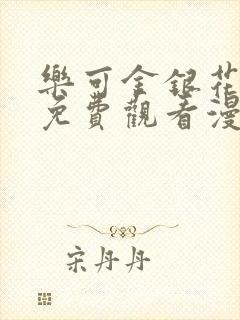 樂可金銀花
免費觀看漫
宋丹丹